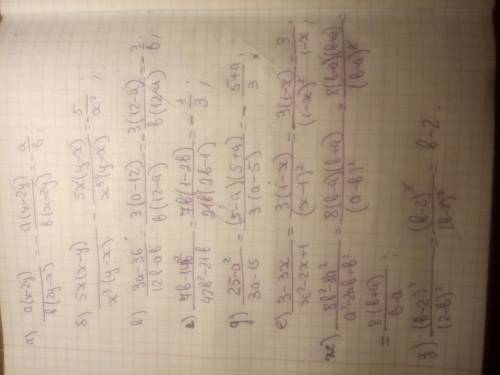 а) a(x-2y)/b(2y-x) = - a(x-2y)/b(x-2y) = - a/b;
б) 5x(x-y)/x³(y-x) = - 5x(y-x)/x³(y-x) = - 5/x²;
в) 3a-36/12b-ab = 3(a-12)/b(12-a) = - 3(12-a)/b(12-a) = - 3/b;
г) 7b-14b²/42b²-21b = 7b(1-2b)/21b(2b-1) = - 1/3;
д) 25-a²/3a-15 = (5-a)(5+a)/3(a-5) = - 5+a/3;
е) 3-3x/x²-2x+1 = 3(1-x)/(x-1)² = 3(1-x)/(1-x)² = 3/1-x;
ж) 8b²-8a²/a²-2ab+b² = 8(b-a)(b+a)/(a-b)² = 8(b-a)(b+a)/(b-a)² =
= 8(b+a)/b-a
з) (b-2)³/(2-b)² = (b-2)³/(b-2)² = b-2.